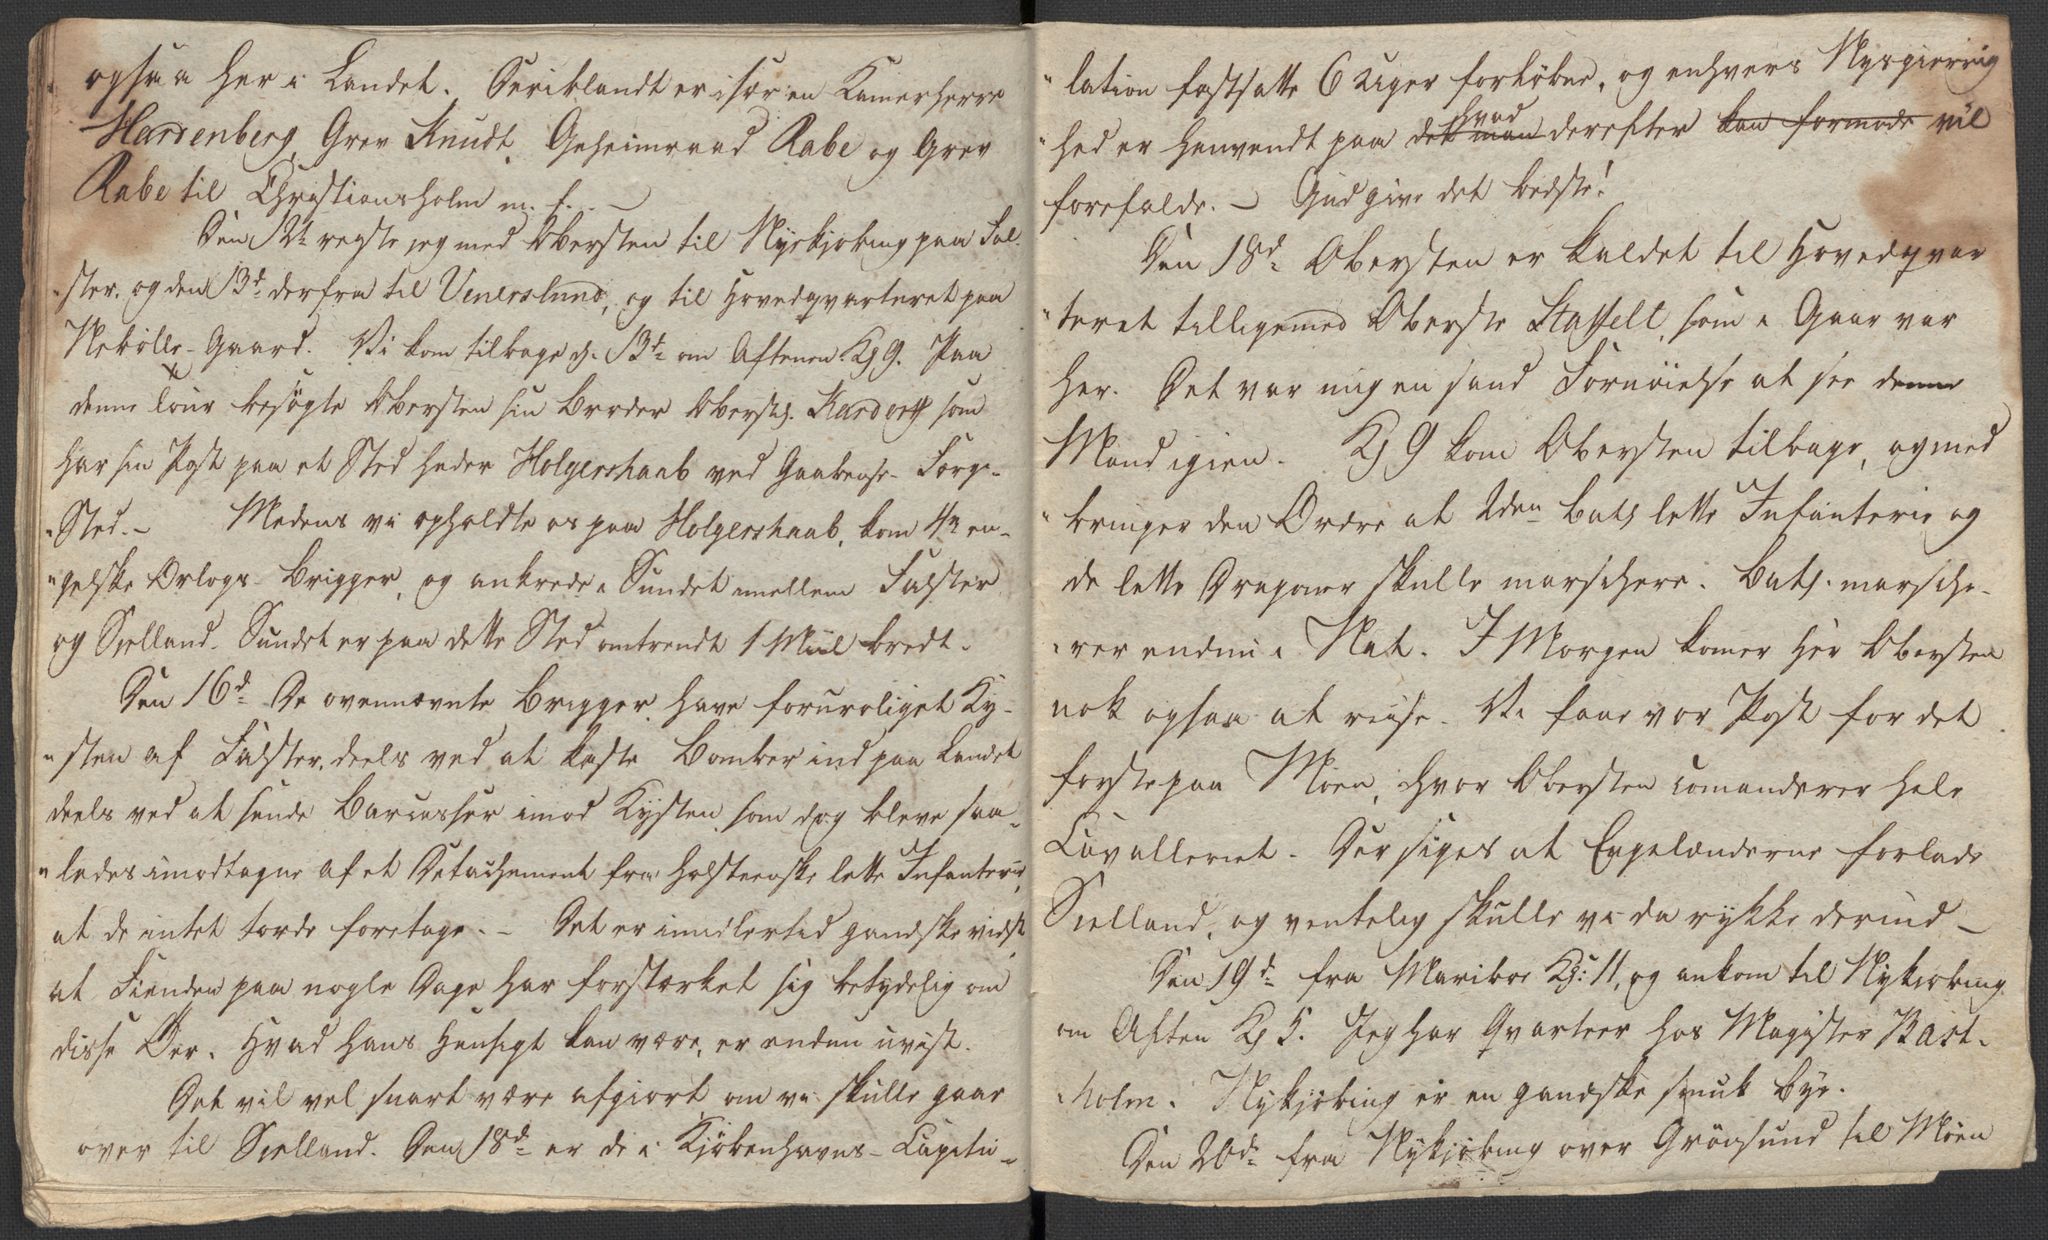 ogsaa her i Landet. Seriblandt er især en Kammerherre
Hardenberg, Grev Knudt, Geheimraad Rabe og Grev
Rabe til Christiansholm m. f. –
Den 12t reyste jeg med Obersten til Nyekjøbing paa Fal-
ster, og den 13d derfra til Venerslund, og til Hovedqvarteret paa
Gaard. Vi kom tilbage d. 13d om Aftenen Kl 9. Paa
denne Tour besøgte Obersten sin Broder Oberstl. Kardorff som
har sin Post paa et Sted heder Holgershaab ved Gaabense-Færge-
Sted. – Medens vi opholdte os paa Holgershaab, kom 4re en-
gelske Orlogs-Brigger, og ankrede i Sundet imellem Falster
og Sielland. Sundet er paa dette Sted omtrendt 1 Miil bredt.
Den 16d De ovennævnte Brigger have foruroliget Ky-
sten af Falster, deels ved at kaste Bomber ind paa Landet
deels ved at sende Barcasser imod Kysten, som dog bleve saa-
ledes imodtagne af et Detachement fra holsteenske lette Infanterie,
at de intet torde foretage. – Det er imidlertid gandske vidst
at Fienden paa nogle Dage har forstærket sig betydelig om
disse Øer. Hvad hans Hensigt kan være, er endnu uvist.
Det vil vel snart være afgiort om vi skulle gaae
over til Sielland. Den 18d er de i Kjøbenhavns-Capitu-
lation fastsatte 6 Uger forløbne, og enhvers Nysgierrig-
hed er henvendt paa det man hvad derefter kan formode vil
forefalde. – Gud give det bedste!
Den 18d Obersten er kaldet til Hovedqvar-
teret tilligemed Oberste Staffelt, som i Gaar var
her. Det var mig en sand Fornøielse at see denne
Mand igien. Kl 9 kom Obersten tilbage, og med-
bringer den Ordre at 2den Batl lette Infanterie og
de lette Dragoner skulle marschere. Batl. marsche-
rer endnu i Nat. I Morgen komer Hr Obersten
nok ogsaa at reise. Vi faae vor Post for det
første paa Møen, hvor Obersten comanderer hele
Cavalleriet. Der siges at Engelænderne forlade
Sielland, og ventelig skulle vi da rykke derind –
Den 19d fra Mariboe Kl: 11, og ankom til Nykiøbing
om Aften Kl 5. Jeg har Qvarteer hos Magister Bast-
holm. Nykjøbing er en gandske smuk Bye.
Den 20d fra Nykjøbing over Grønsund til Møen